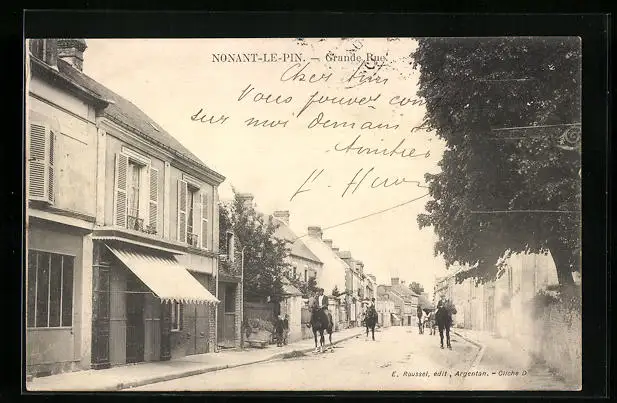 NONANT-LE-PIN. — Grande Rue.
Cher ami
Vous pouvez
sur moi demain
Amitiés
E. Roussel, édit, Argentan. - Cliché D